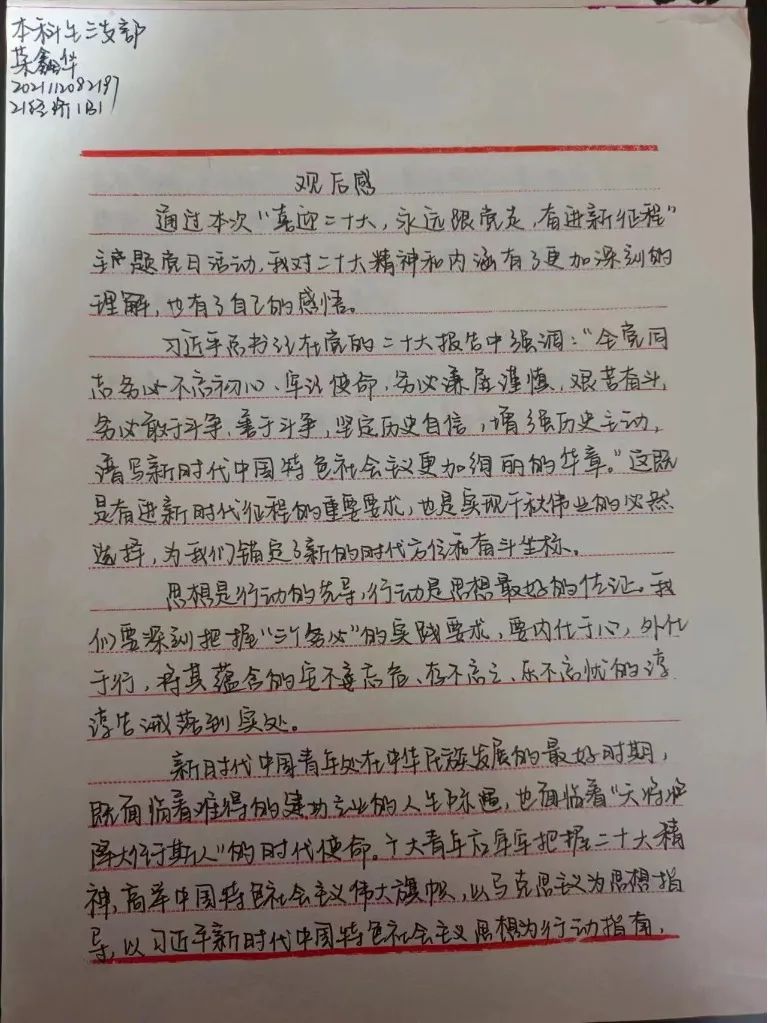 本科生三支部
蔡鑫华
202111208219
21经济1B1
观后感
通过本次“喜迎二十大，永远跟党走，奋进新征程”
主题党日活动，我对二十大精神和内涵有了更加深刻的
理解，也有了自己的感悟。
习近平总书记在党的二十大报告中强调：“全党同
志务必不忘初心、牢记使命，务必谦虚谨慎、艰苦奋斗，
务必敢于斗争、善于斗争，坚定历史自信，增强历史主动，
谱写新时代中国特色社会主义更加绚丽的华章。”这既
是奋进新时代征程的重要要求，也是实现千秋伟业的必然
选择，为我们锚定了新的时代方位和奋斗坐标。
思想是行动的先导，行动是思想最好的佐证。我
们要深刻把握“三个务必”的实践要求，要内化于心，外化
于行，将其蕴含的安不忘危、存不忘亡、乐不忘忧的谆
谆告诫落到实处。
新时代中国青年处在中华民族发展的最好时期，
既面临着难得的建功立业的人生际遇，也面临着“天将
降大任于斯人”的时代使命。广大青年应牢牢把握二十大精
神，高举中国特色社会主义伟大旗帜，以马克思主义为思想指
导，以习近平新时代中国特色社会主义思想为行动指南，